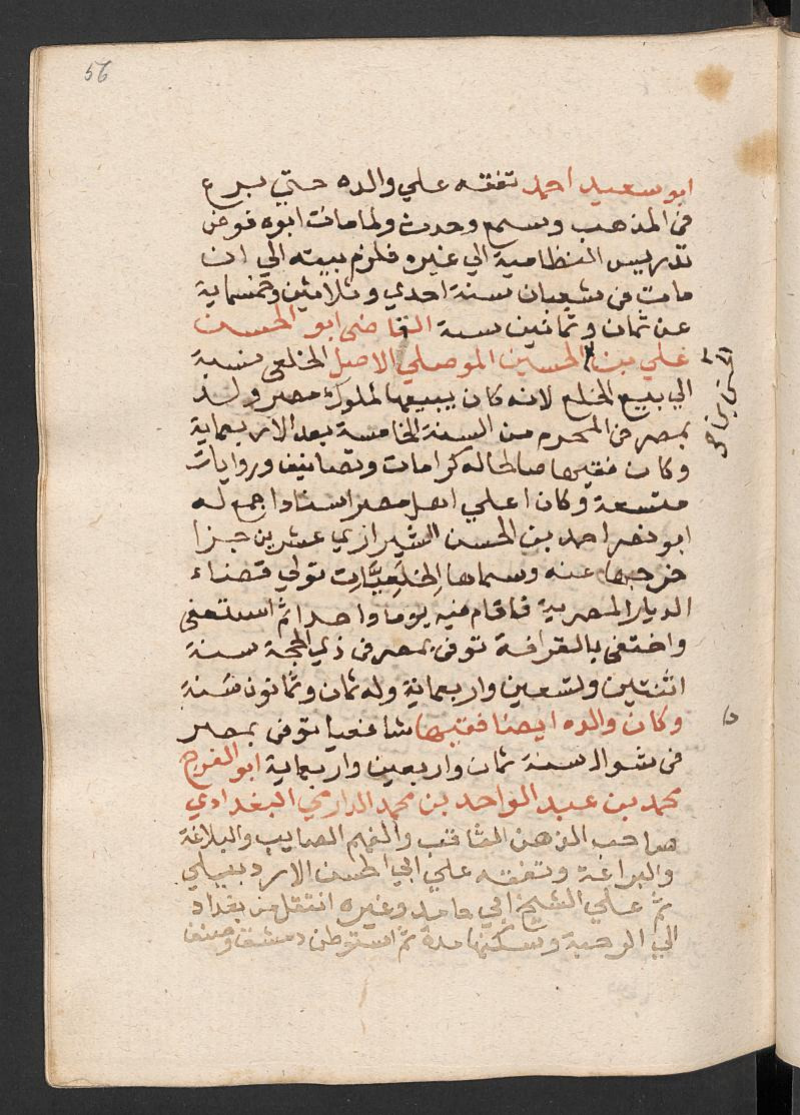 56
ابو سعيد احمد تفقه علي والده حتي برع
في المذهب وسمع وحدث ولما مات ابوه فوض
تدريس النظامية الي غيره فلزم بيته الي ان
مات في شعبان سنة احدي وثلاثين وخمسماية
عن ثمان وثمانين سنة القاضي ابو الحسن
علي بن الحسين الموصلي الاصل الخلعي نسبة
الي بيع الخلع لانه كان يبيعها لملوك مصر ولد
بمصر في المحرم من السنة الخامسة بعد الاربعماية
وكان فقيها صالحا له كرامات وتصانيف وروايات
متسعة وكان اعلي اهل مصر اسنادا جمع له
ابو نصر احمد بن الحسن الشيرازي عشرين جزا
خرجها عنه وسماها الخلعيات تولي قضاء
الديار المصرية فاقام فيه يوما واحدا ثم استعفي
واختفي بالقرافة توفي بمصر في ذي الحجة سنة
اثنتين وتسعين واربعماية وله ثمان وثمانون سنة
وكان والده ايضا فقيها شافعيا توفي بمصر
في شوال سنة ثمان واربعين واربعماية ابو الفرج
محمد بن عبد الواحد بن محمد الدارمي البغدادي
صاحب الذهن الثاقب والفهم الصايب والبلاغة
والبراعة وتفقه علي ابي الحسن الاردبيلي
ثم علي الشيخ ابي حامد وغيره انتقل من بغداد
الي الرحبة وسكنها مدة ثم استوطن دمشق وصنف